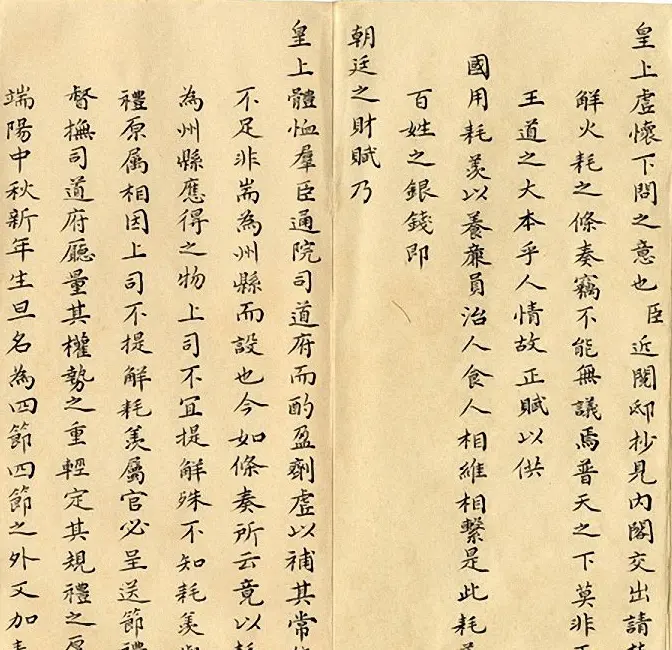 皇上虛懷下問之意也臣近閱邸抄見內閣交出請
解火耗之條奏竊不能無議焉普天之下莫非
王道之大本乎人情故正賦以供
國用耗羨以養廉員治人食人相維相繫是此耗羨
百姓之銀錢即
朝廷之財賦乃
皇上體恤羣臣通院司道府而酌盈劑虛以補其常
不足非耑為州縣而設也今如條奏所云竟以
為州縣應得之物上司不宜提解殊不知耗羨
禮原屬相因上司不提解耗羨屬官必呈送節禮
督撫司道府廳量其權勢之重輕定其規禮之
端陽中秋新年生旦名為四節四節之外又加